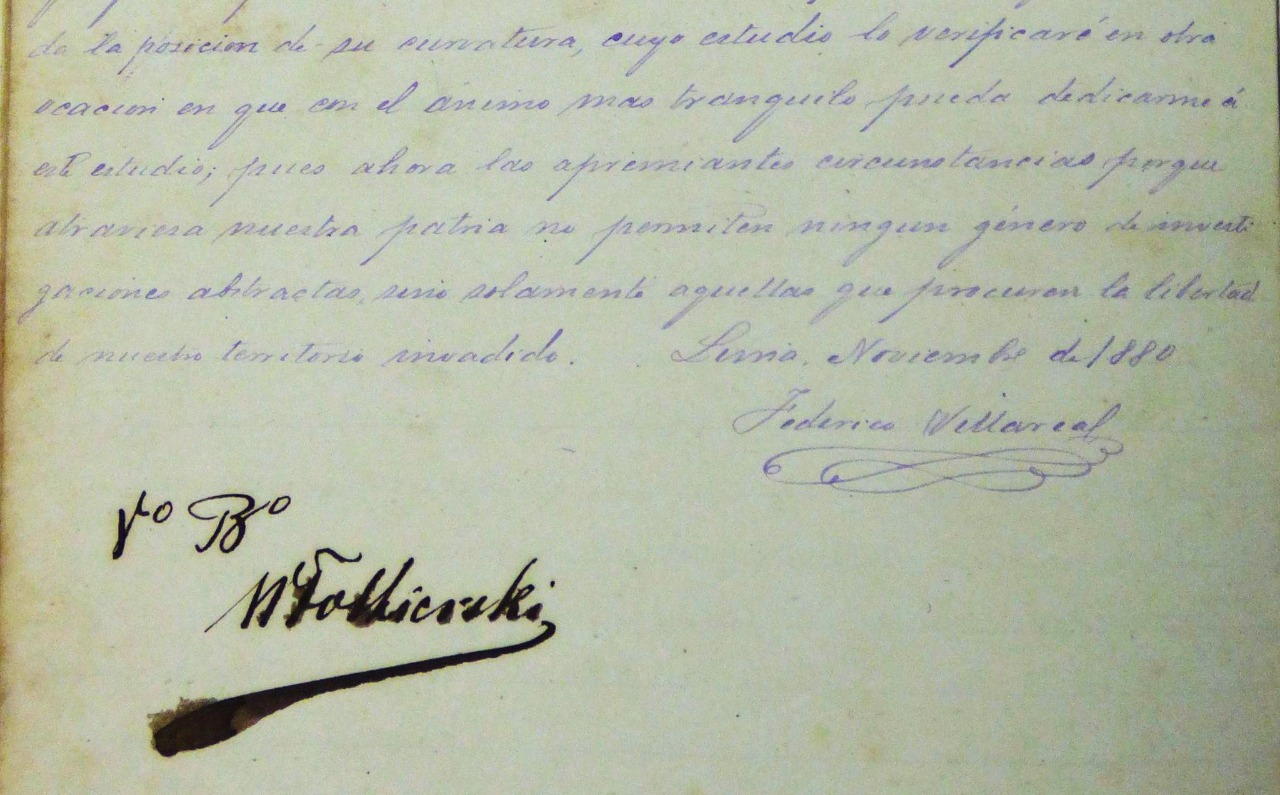 da la posicion de su curvatura, cuyo estudio lo verificaré en otra
ocacion en que con el ánimo mas tranquilo pueda dedicarme á
este estudio; pues ahora las apremiantes circunstancias porque
atraviesa nuestra patria no permiten ningun género de investi
gaciones abstractas, sino solamente aquellas que procuren la libertad
de nuestro territorio invadido. Lima, Noviembre de 1880
Federico Villareal
Vº Bº